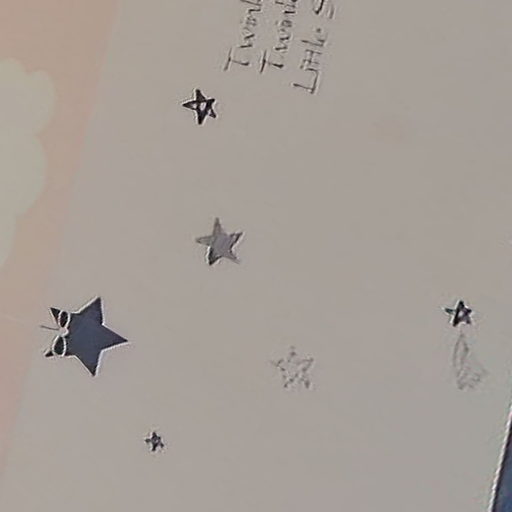 Twinkl
Twinkl
Little S